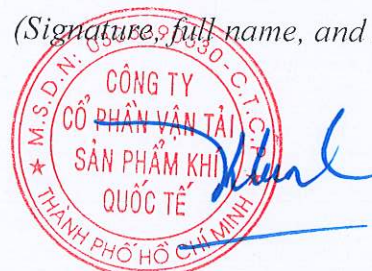 (Signature, full name, and
M.S.D.N:
C.T.C.P
CÔNG TY
CỔ PHẦN VẬN TẢI
SẢN PHẨM KHÍ
QUỐC TẾ
THÀNH PHỐ HỒ CHÍ MINH